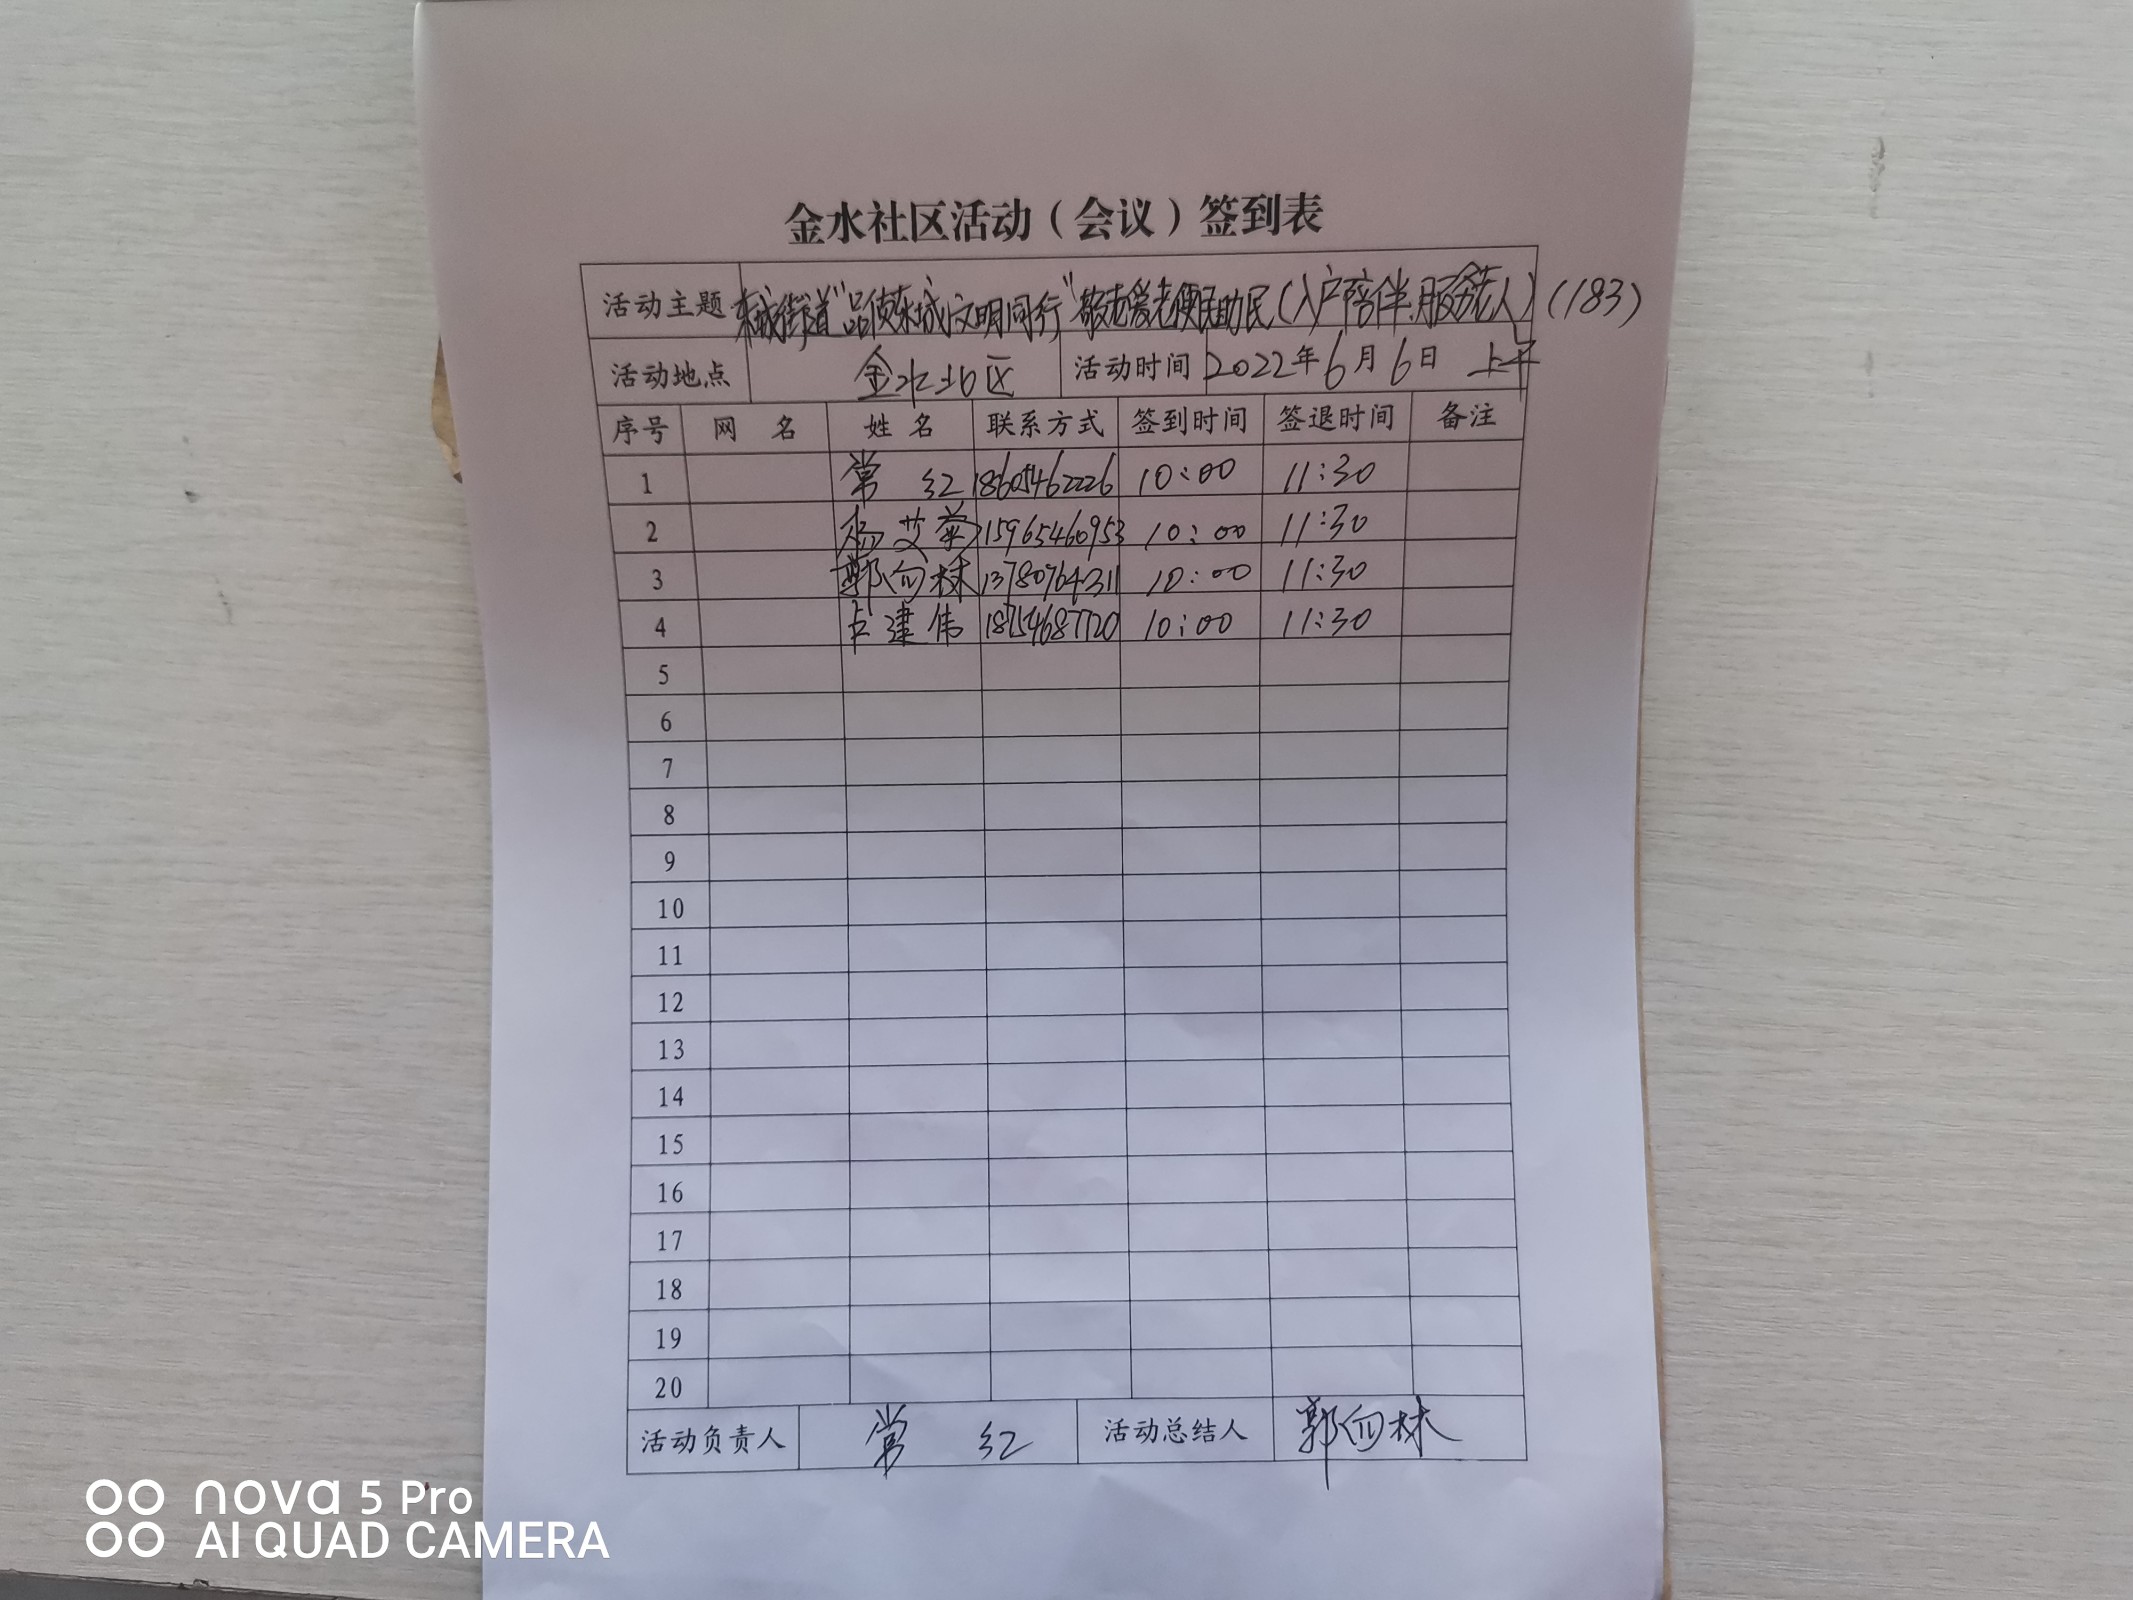 金水社区活动（会议）签到表
活动主题 东城街道"品质东城文明同行"敬老爱老便民助民(入户陪伴.服务老人)(183)
活动地点 金水北区 活动时间 2022年6月6日 上午
序号 网 名 姓 名 联系方式 签到时间 签退时间 备注
1 常 红 18605462226 10:00 11:30
2 杨艾英 15965460953 10:00 11:30
3 郭向林 13780764311 10:00 11:30
4 卢建伟 18754687720 10:00 11:30
5
6
7
8
9
10
11
12
13
14
15
16
17
18
19
20
活动负责人 常 红 活动总结人 郭向林
nova 5 Pro
AI QUAD CAMERA